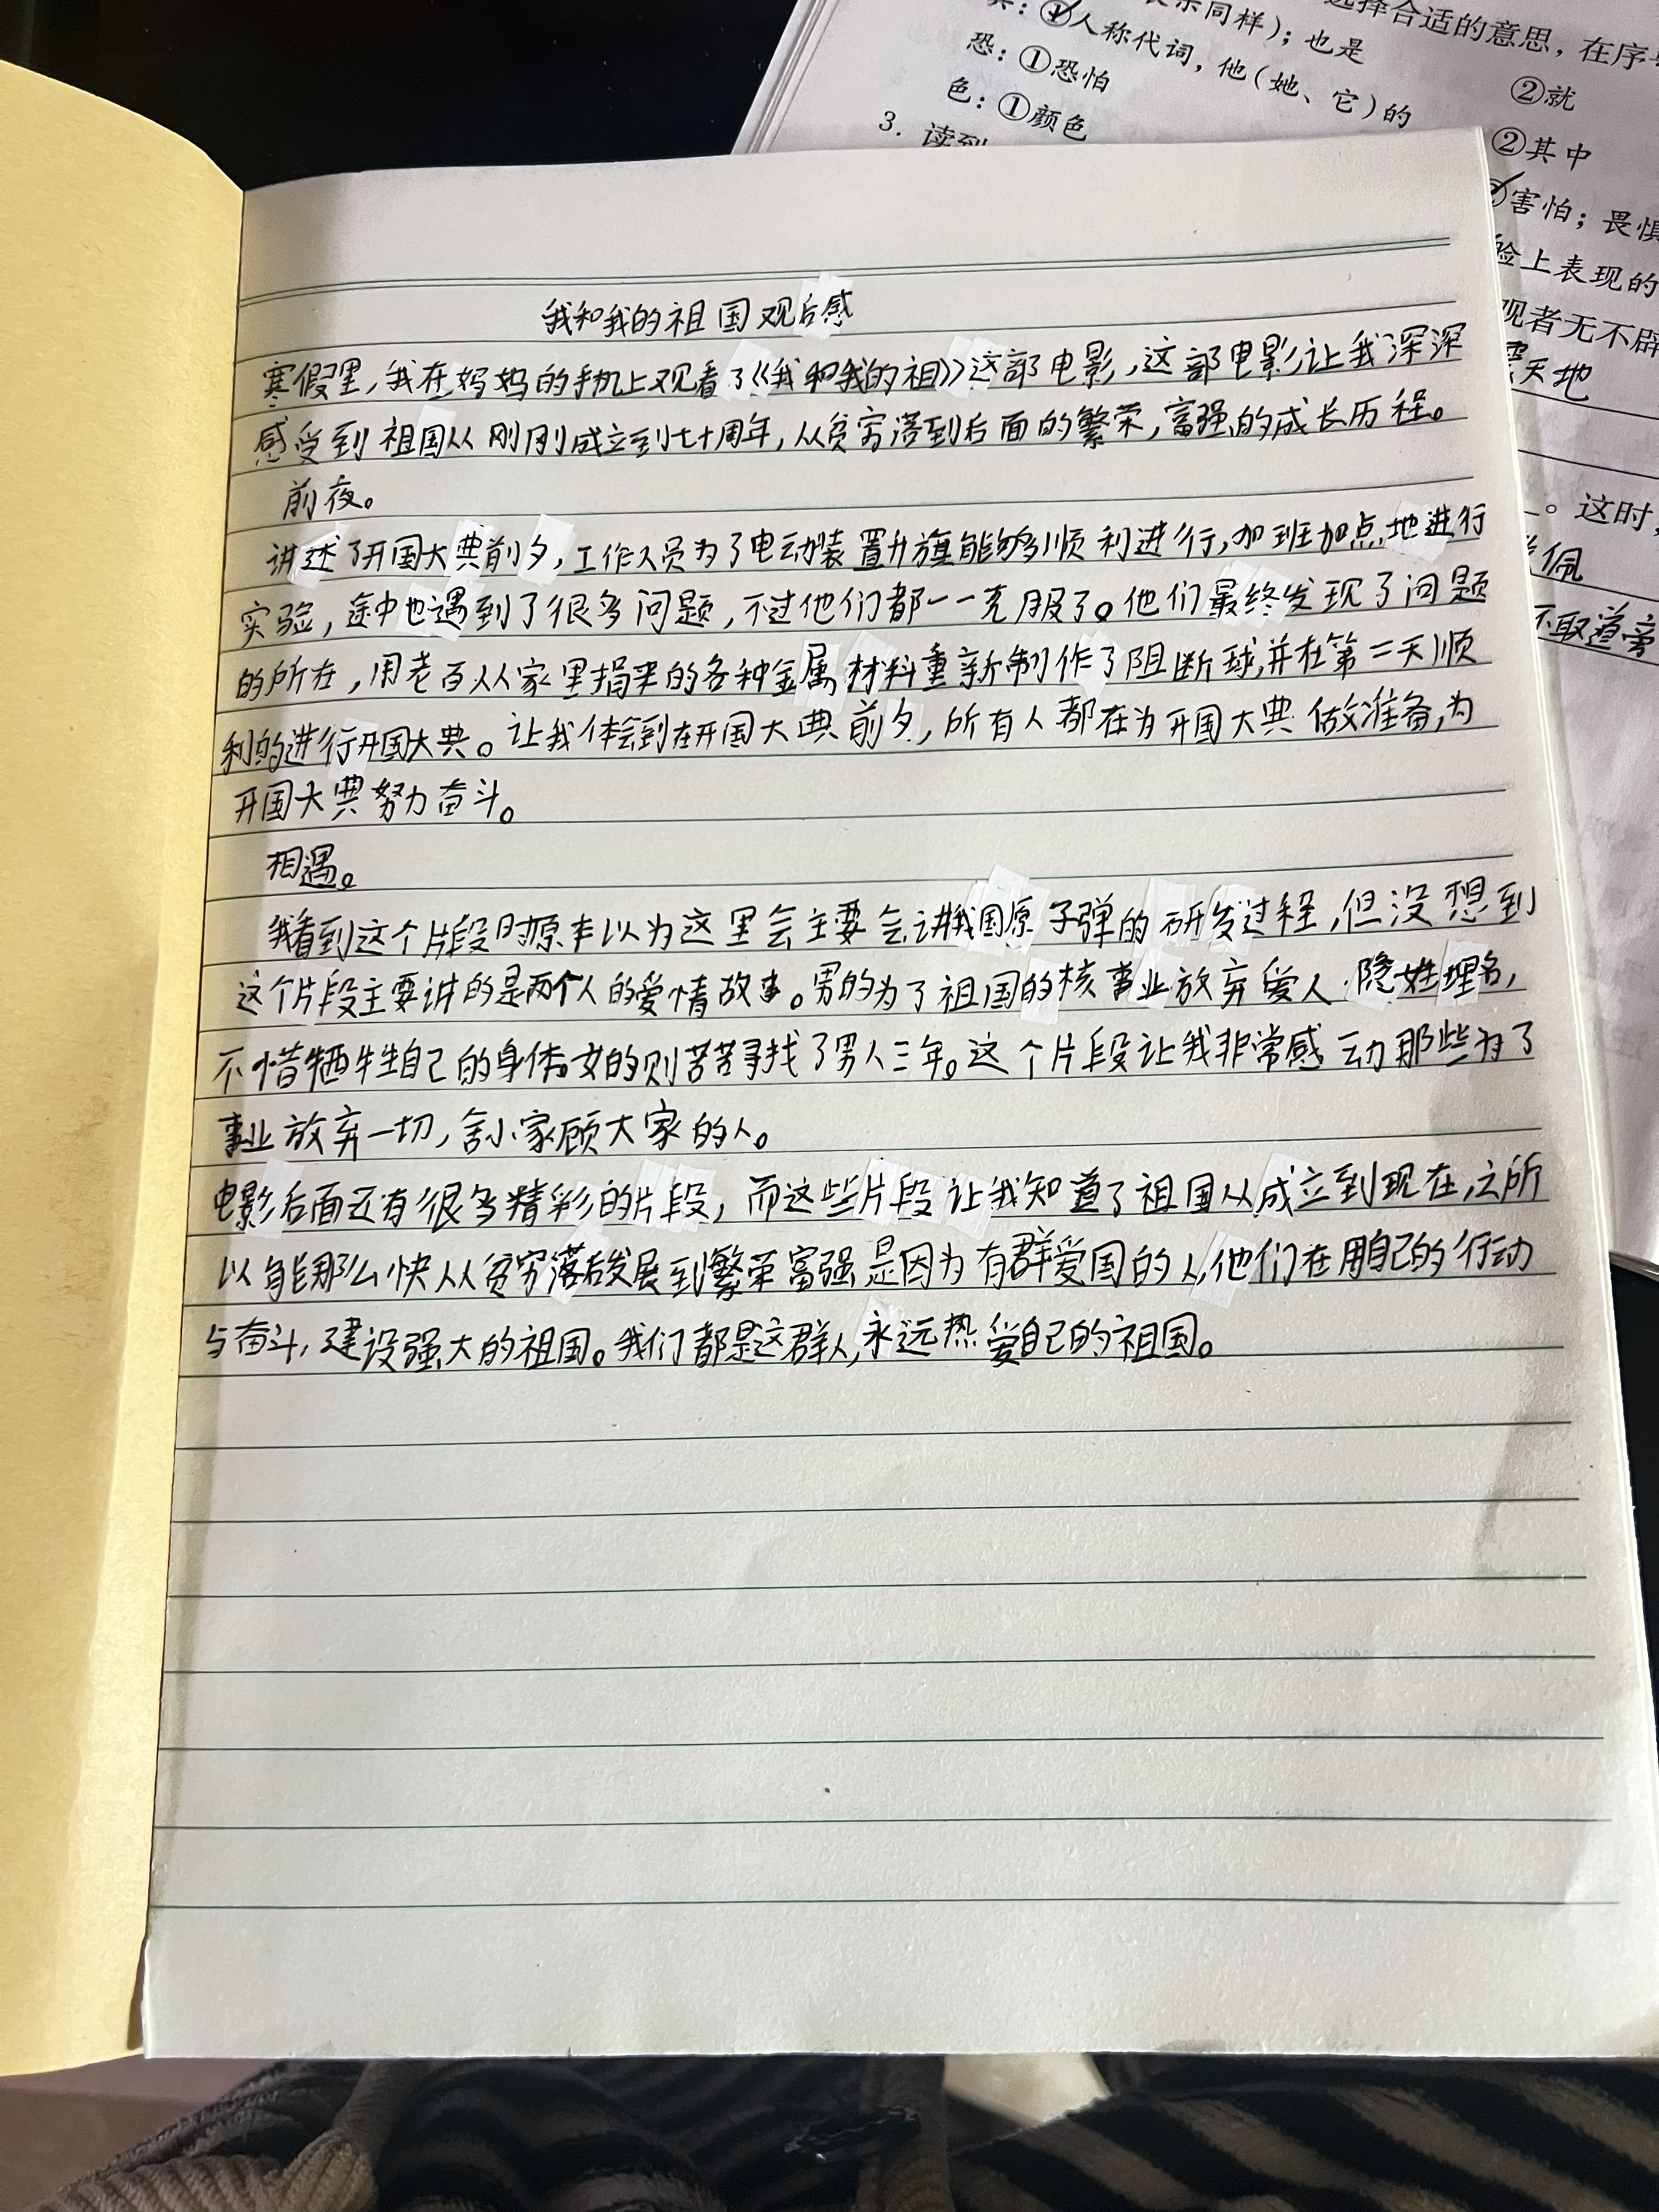 选择合适的意思，在序号
表示同样）；也是
②就
①人称代词，他（她、它）的
②其中
恐：①恐怕
害怕；畏惧
色：①颜色
脸上表现的
3. 读到
观者无不辟
天地
。这时，
佩
不取道旁
我和我的祖国观后感
寒假里，我在妈妈的手机上观看了《我和我的祖》这部电影，这部电影让我深深
感受到祖国从刚刚成立到七十周年，从贫穷落到后面的繁荣，富强的成长历程。
前夜。
讲述了开国大典前夕，工作人员为了电动装置升旗能够顺利进行，加班加点地进行
实验，途中也遇到了很多问题，不过他们都一一克服了。他们最终发现了问题
的所在，用老百从家里捐来的各种金属材料重新制作了阻断球，并在第二天顺
利的进行开国大典。让我体会到在开国大典前夕，所有人都在为开国大典做准备，为
开国大典努力奋斗。
相遇。
我看到这个片段时原本以为这里会主要会讲我国原子弹的研发过程，但没想到
这个片段主要讲的是两个人的爱情故事。男的为了祖国的核事业放弃爱人，隐姓埋名，
不惜牺牲自己的身体。女的则苦苦寻找了男人三年。这个片段让我非常感动那些为了
事业放弃一切，舍小家顾大家的人。
电影后面还有很多精彩的片段，而这些片段让我知道了祖国从成立到现在，之所
以能那么快从贫穷落后发展到繁荣富强是因为有群爱国的人，他们在用自己的行动
与奋斗，建设强大的祖国。我们都是这群人，永远热爱自己的祖国。